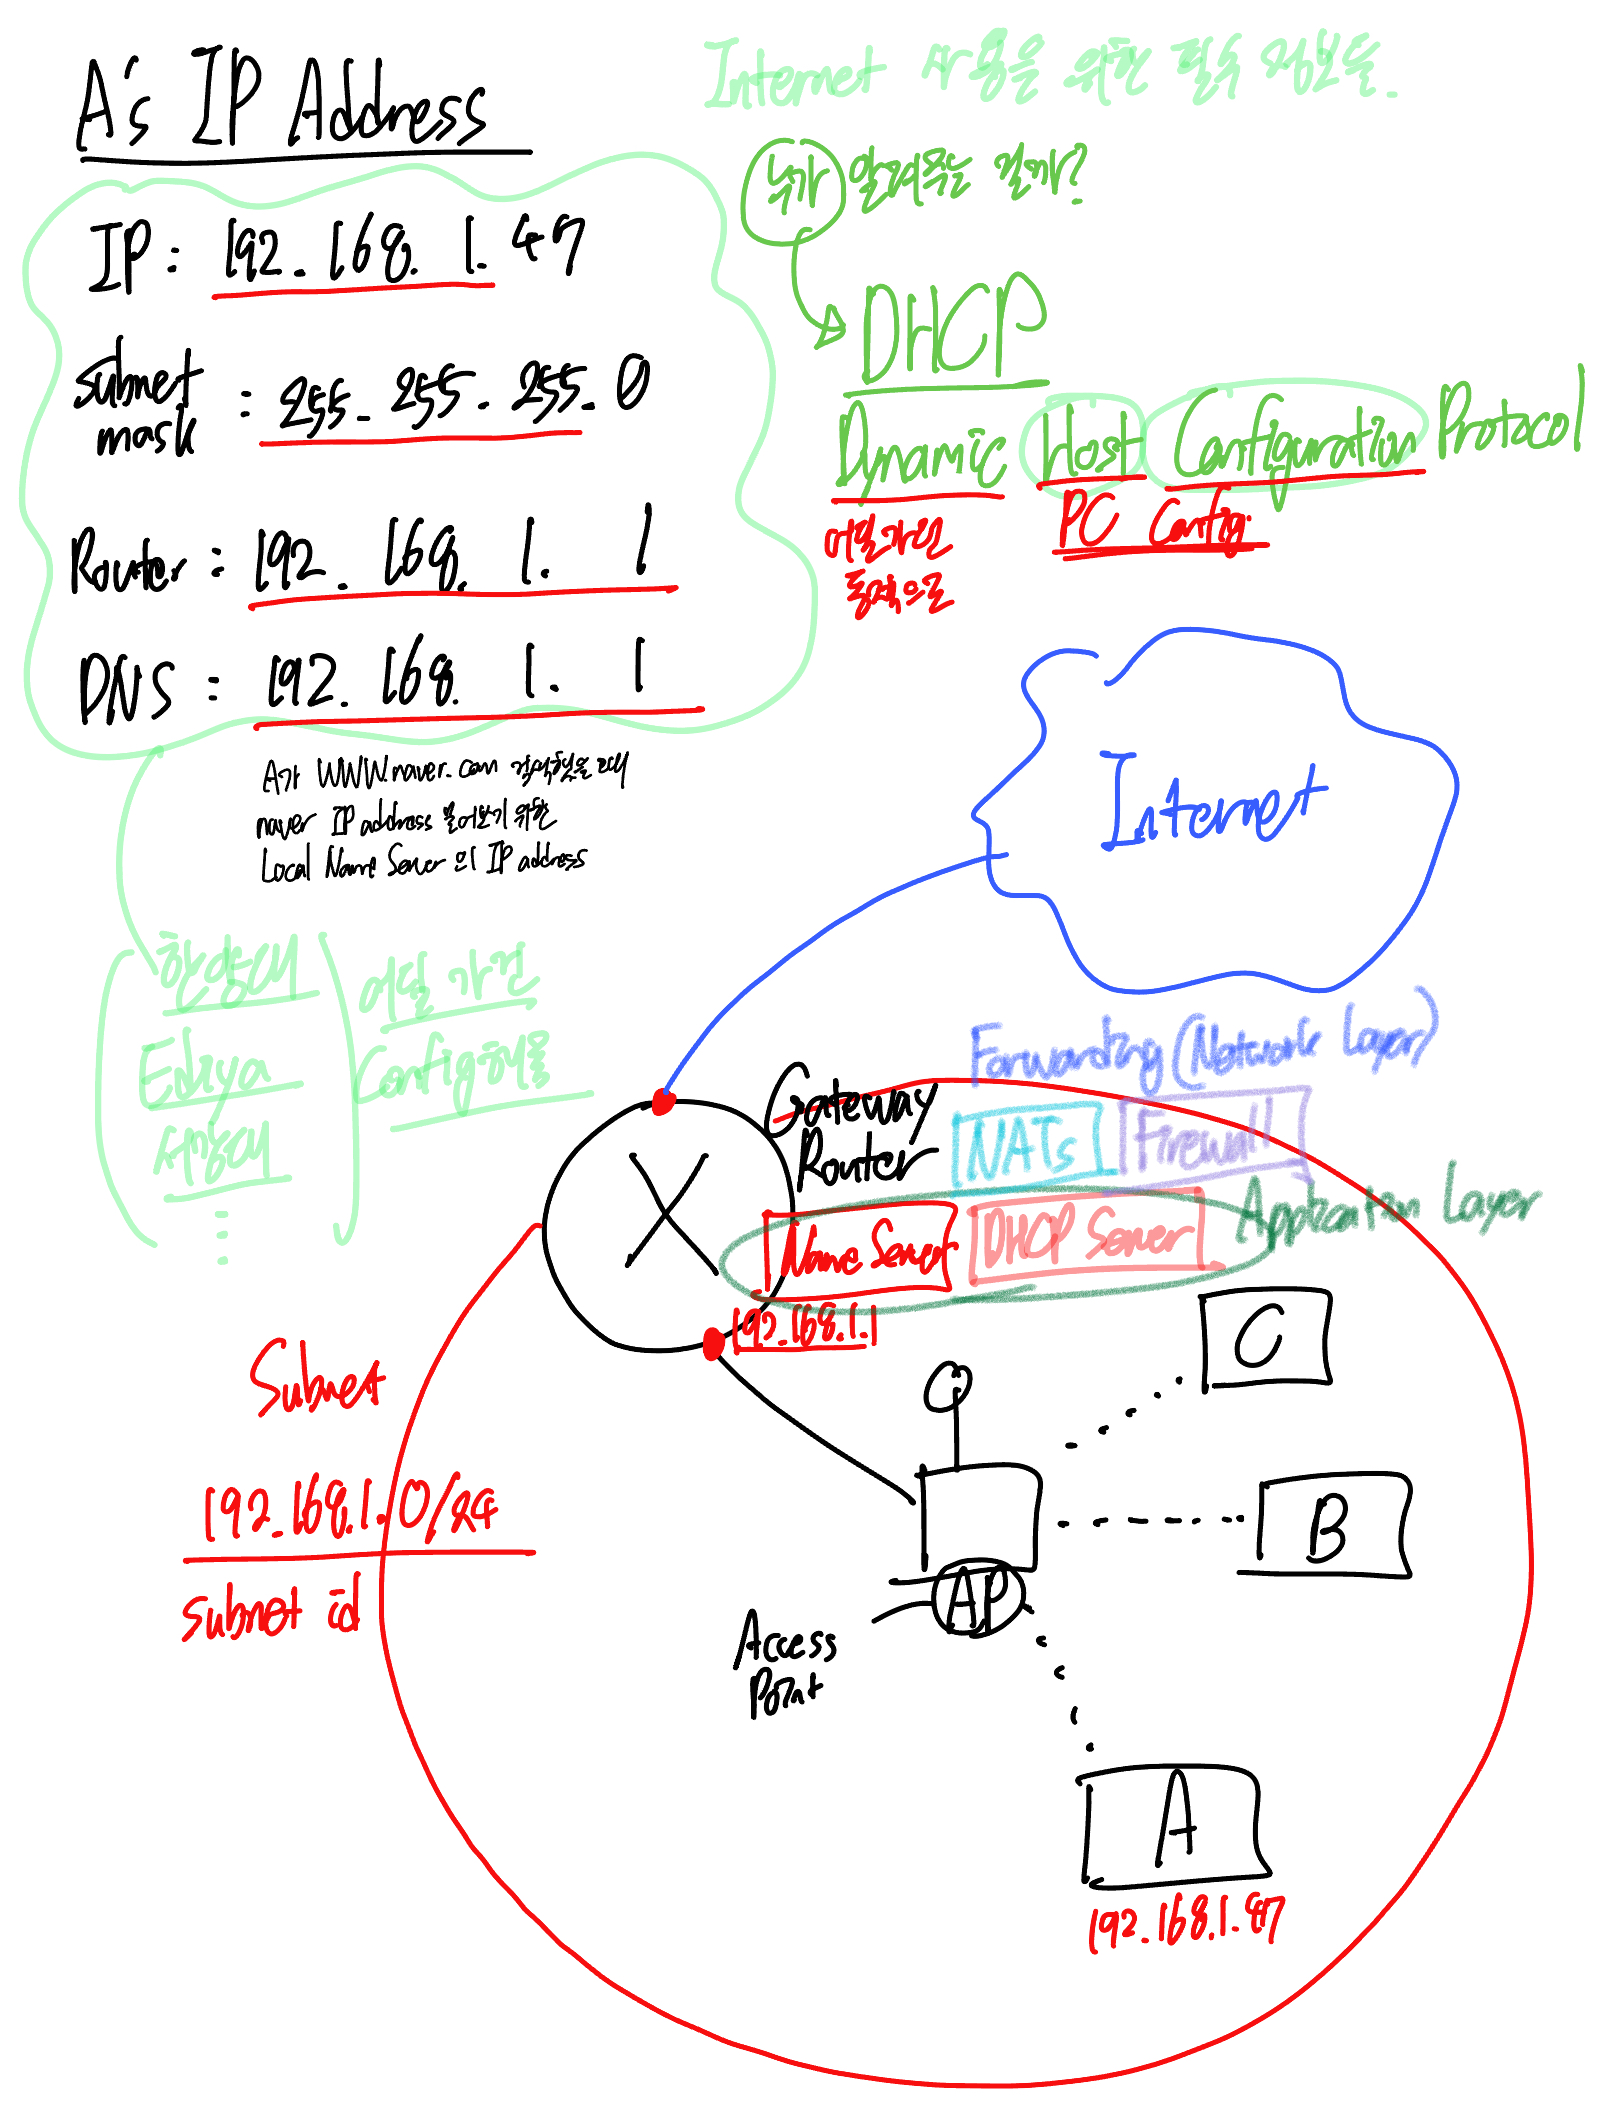 A's IP Address
Internet 사용을 위한 필수 정보들.
누가 알려주는 걸까?
IP: 192.168.1.47
subnet mask : 255.255.255.0
Router : 192.168.1.1
DNS : 192.168.1.1
A가 WWW.naver.com 검색했을 때
naver IP address 물어보기 위한
Local Name Server 의 IP address
DHCP
Dynamic Host Configuration Protocol
어딜가던
동적으로
PC Config.
Internet
한양대
Ediya
서강대
어딜 가던
Config해줌
Forwarding (Network Layer)
Gateway
Router
NATs
Firewall
Name Server
DHCP Server
Application Layer
192.168.1.1
Subnet
192.168.1.0/24
subnet id
C
B
AP
Access
Point
A
192.168.1.47